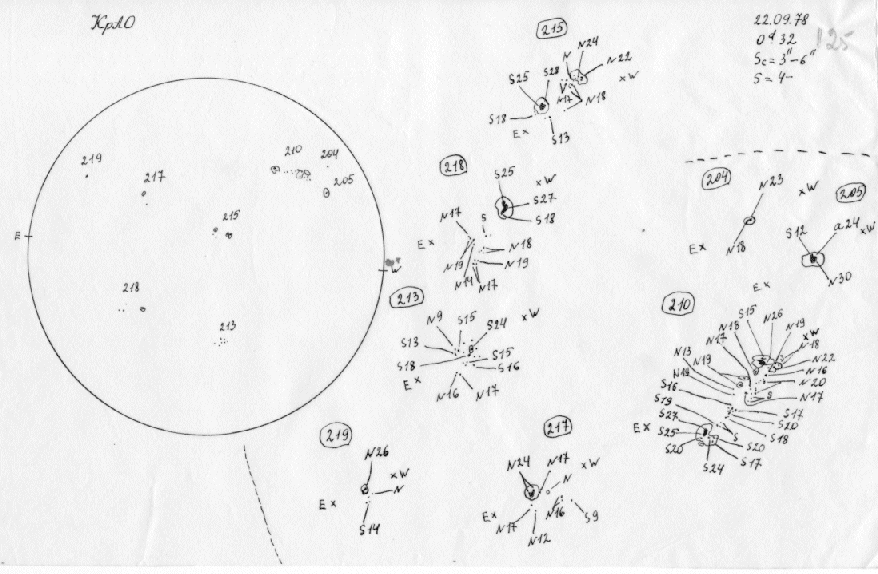 КрАО
22.09.78
125
Sc = 3" - 6"
S = 4-
219
217
215
210
204
205
218
213
E
W
215
N
N24
N22
S25
S28
xW
N17
N18
S18
Ex
S13
218
S25
xW
S27
S18
N17
S
Ex
N18
N19
N14
N17
N19
213
N9
S15
S24
xW
S13
S15
S18
S16
Ex
N16
N17
204
N23
xW
Ex
N18
205
S12
a24
xW
N30
Ex
210
S15
N26
N18
N19
N17
xW
N18
N13
N19
N22
N19
N16
S16
N20
S19
S
N17
S27
S17
Ex
S25
S20
S20
S
S18
S20
S24
S17
219
N26
xW
N
Ex
S14
217
N24
N17
xW
N
Ex
N17
N16
S9
N12